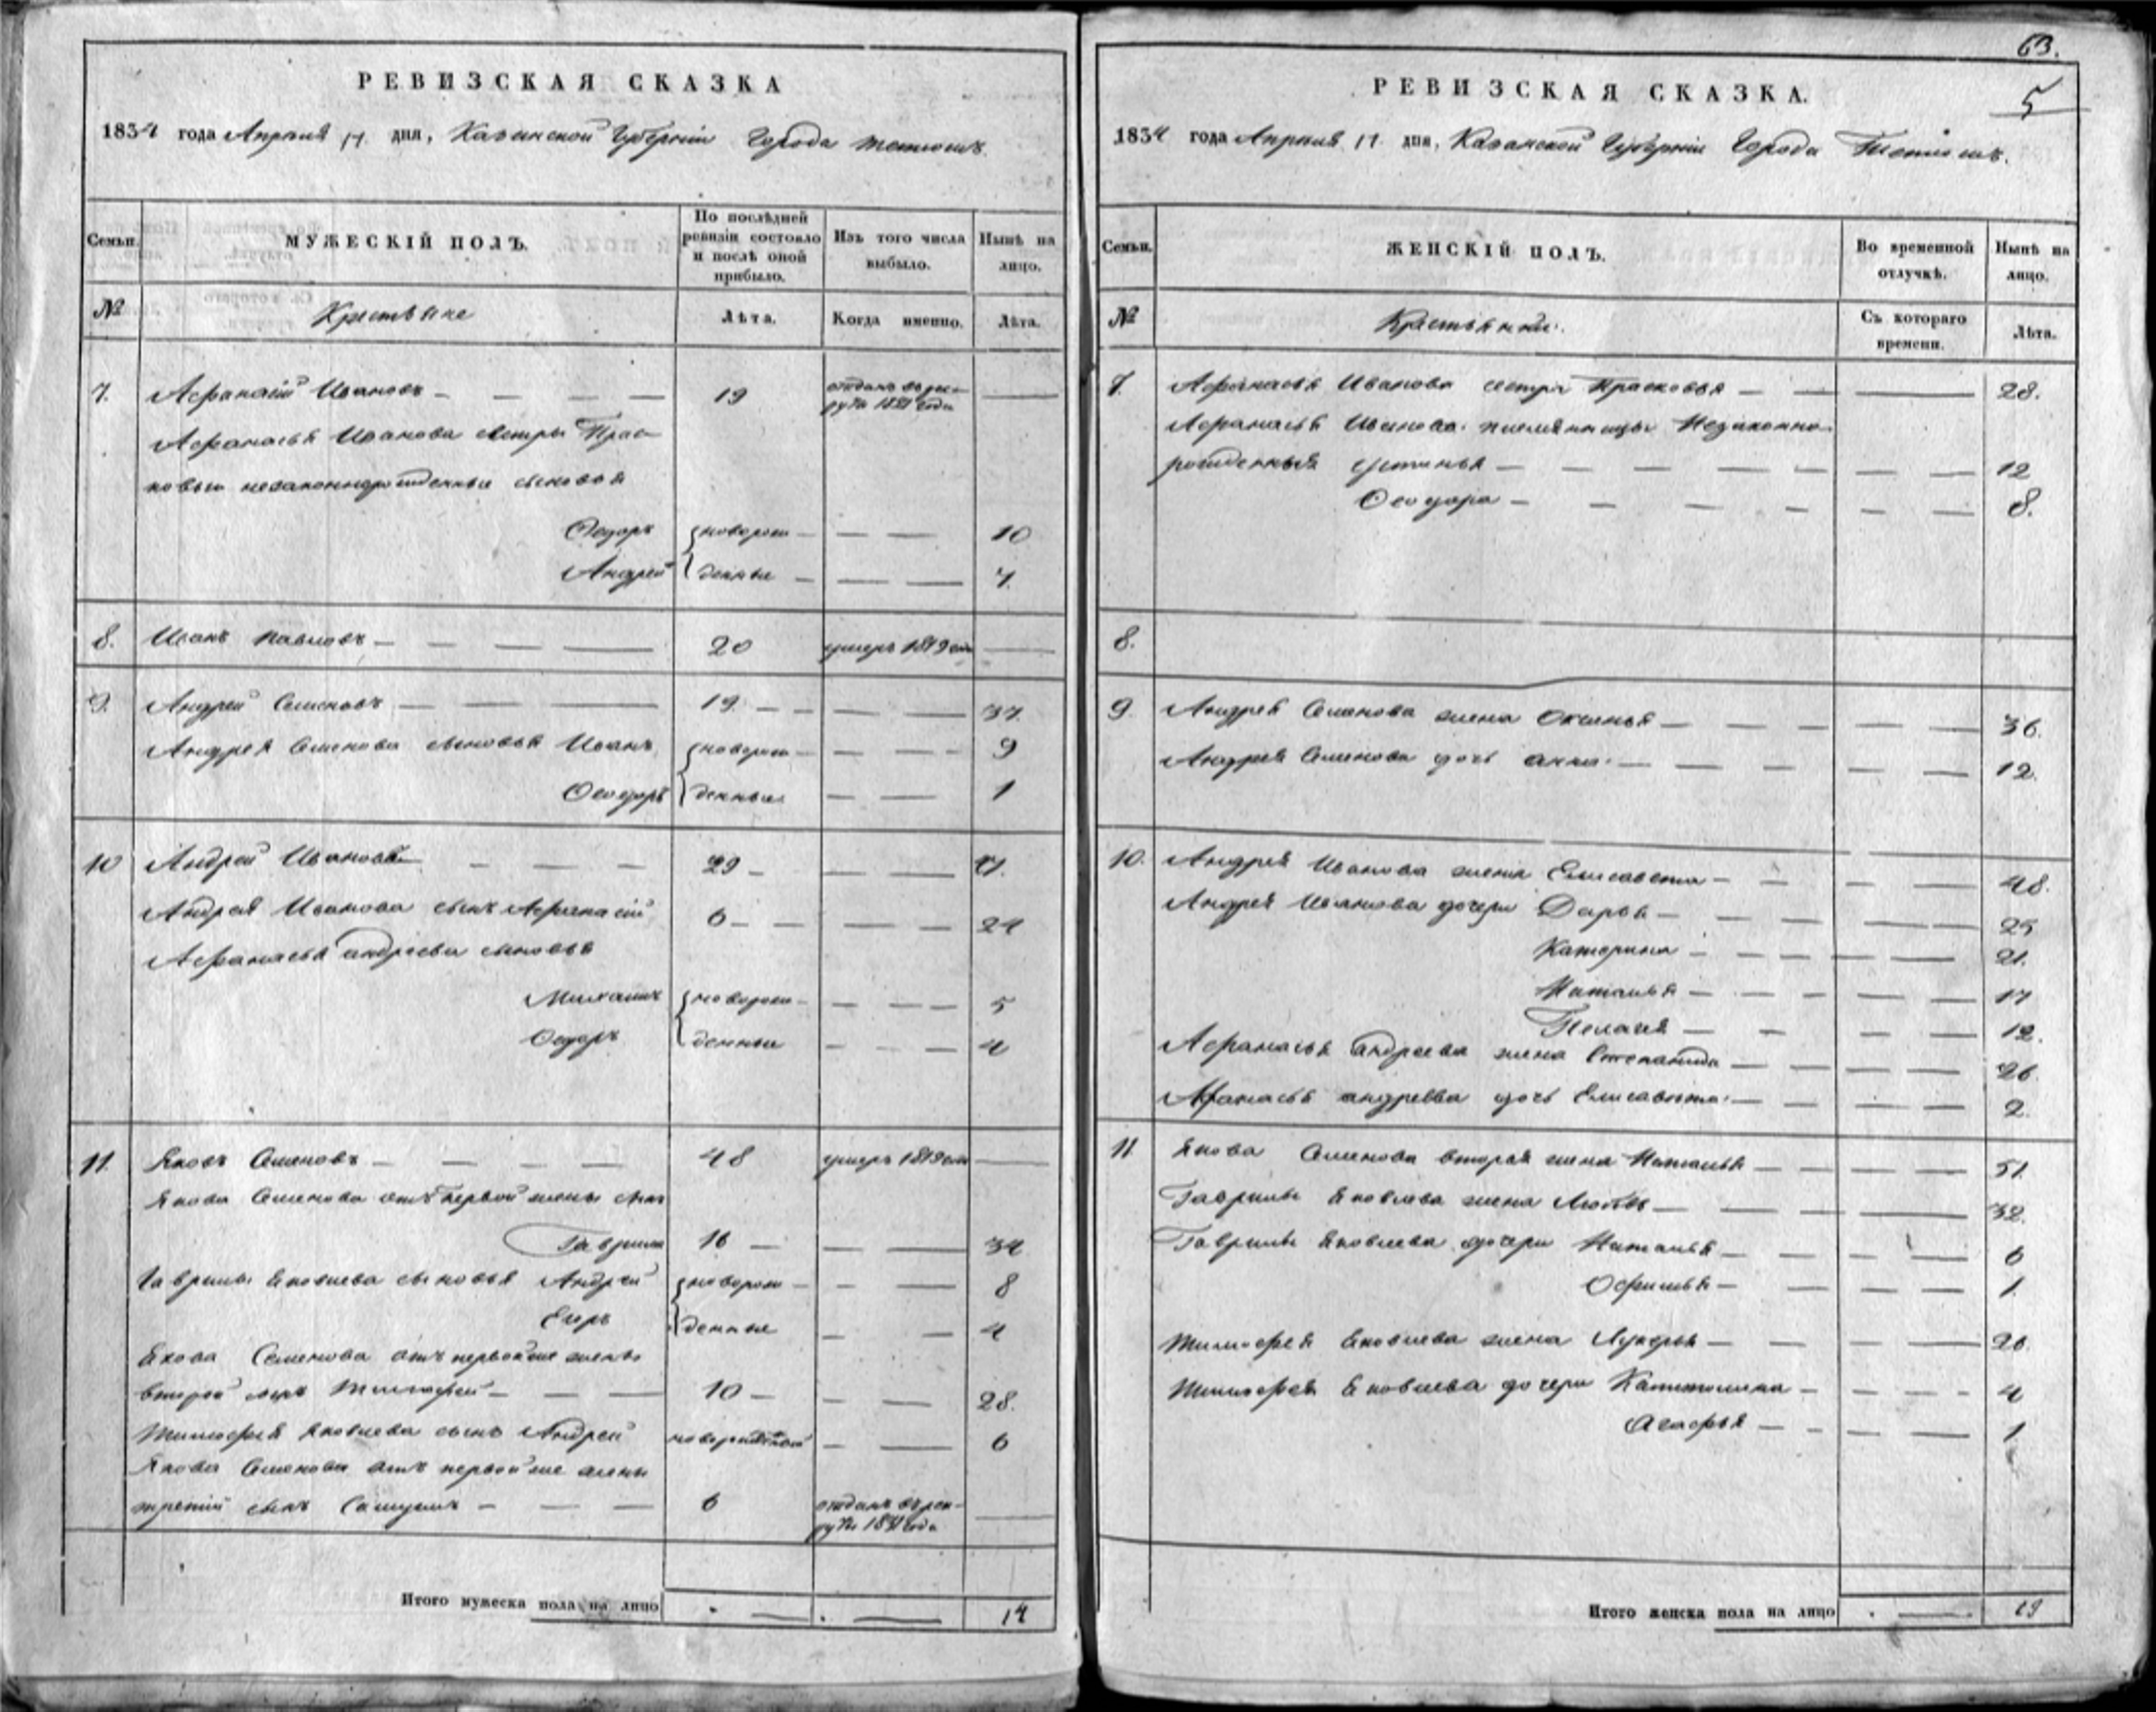 РЕВИЗСКАЯ СКАЗКА
1834 года Апреля 17 дня, Казанской Губернiи Города Тетюшъ.
Семьи.
МУЖЕСКIЙ ПОЛЪ.
По послѣдней ревизiи состояло и послѣ оной прибыло.
Изъ того числа выбыло.
Нынѣ на лицо.
№
Крестьяне
Лѣта.
Когда именно.
Лѣта.
7. Афанасiй Ивановъ 19 отданъ въ рек-
руты 18 1 года
Афанасья Иванова сестры Прас-
ковьи незаконнорожденные сыновья
Федоръ новорож- 10
Андрей денные 7.
8. Иванъ Павловъ 20 умеръ 1819 года
9. Андрей Семеновъ 19. 37.
Андрея Семенова сыновья Иванъ новорож- 9
Феодоръ денные 1
10 Андрей Ивановъ 29
Андрея Иванова сынъ Афанасiй 6 24
Афанасья Андреева сыновья
Михаилъ новорож- 5
Федоръ денные 4
11. Яковъ Семеновъ 48 умеръ 1819 года
Якова Семенова отъ первой жены сынъ
Гаврила 16 34
Гаврилы Яковлева сыновья Андрей новорож- 8
Егоръ денные 4
Якова Семенова отъ первой же жены
второй сынъ Тимофей 10 28.
Тимофея Яковлева сынъ Андрей новорожденной 6
Якова Семенова отъ первой же жены
третiй сынъ Самуилъ 6 отданъ въ рек-
руты 18 1 года
Итого мужеска пола на лицо 14
63.
5
РЕВИЗСКАЯ СКАЗКА.
1834 года Апреля 17 дня, Казанской Губернiи Города Тетюшъ.
Семьи.
ЖЕНСКIЙ ПОЛЪ.
Во временной отлучкѣ.
Нынѣ на лицо.
№
Крестьянки.
Съ котораго времени.
Лѣта.
7. Афанасья Иванова сестра Прасковья 28.
Афанасья Иванова племянницы Незаконно-
рожденныя Устинья 12
Феодора 8.
8.
9 Андрея Семенова жена Оксинья 36.
Андрея Семенова дочь Анна 12.
10. Андрея Иванова жена Елисавета 48.
Андрея Иванова дочери Дарья 25
Катерина 21.
Наталья 17
Пелагея 12.
Афанасья Андреева жена Степанида 26.
Афанасья Андреева дочь Елисавета 2.
11 Якова Семенова вторая жена Наталья 51.
Гаврилы Яковлева жена Любовь 32.
Гаврилы Яковлева дочери Наталья 6
Офимья 1.
Тимофея Яковлева жена Лукерья 26.
Тимофея Яковлева дочери Капитолина 4
Агафья 1
Итого женска пола на лицо 19